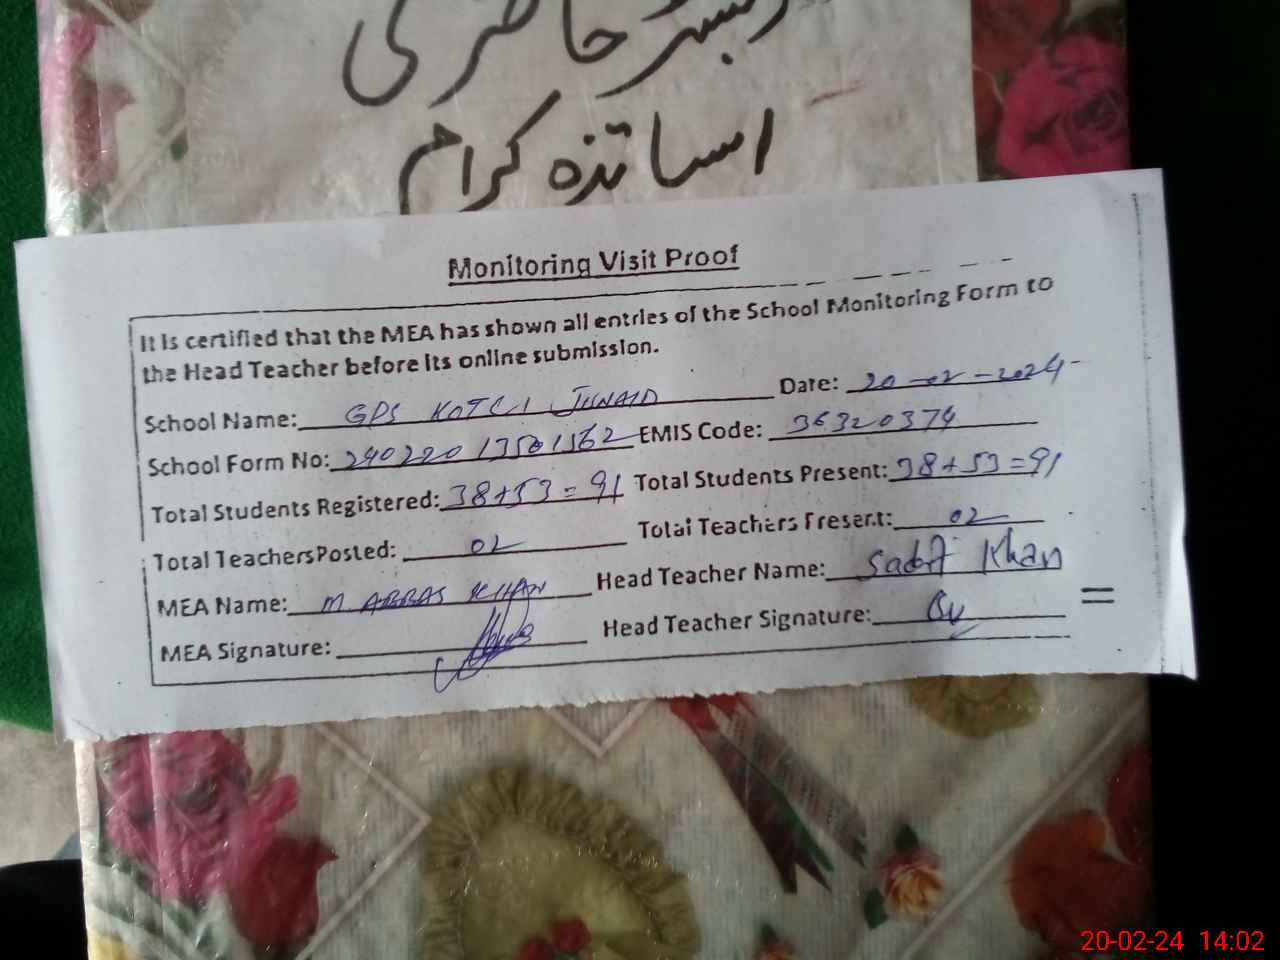 رجسٹر حاضری
اساتذہ کرام
Monitoring Visit Proof
It is certified that the MEA has shown all entries of the School Monitoring Form to
the Head Teacher before its online submission.
School Name: GPS KOTLI JUNAID Date: 20-02-2024
School Form No: 24022013501562 EMIS Code: 36320374
Total Students Registered: 38+53=91 Total Students Present: 38+53=91
Total Teachers Posted: 02 Total Teachers Present: 02
MEA Name: M ABBAS KHAN Head Teacher Name: Khan
MEA Signature: Head Teacher Signature:
20-02-24 14:02